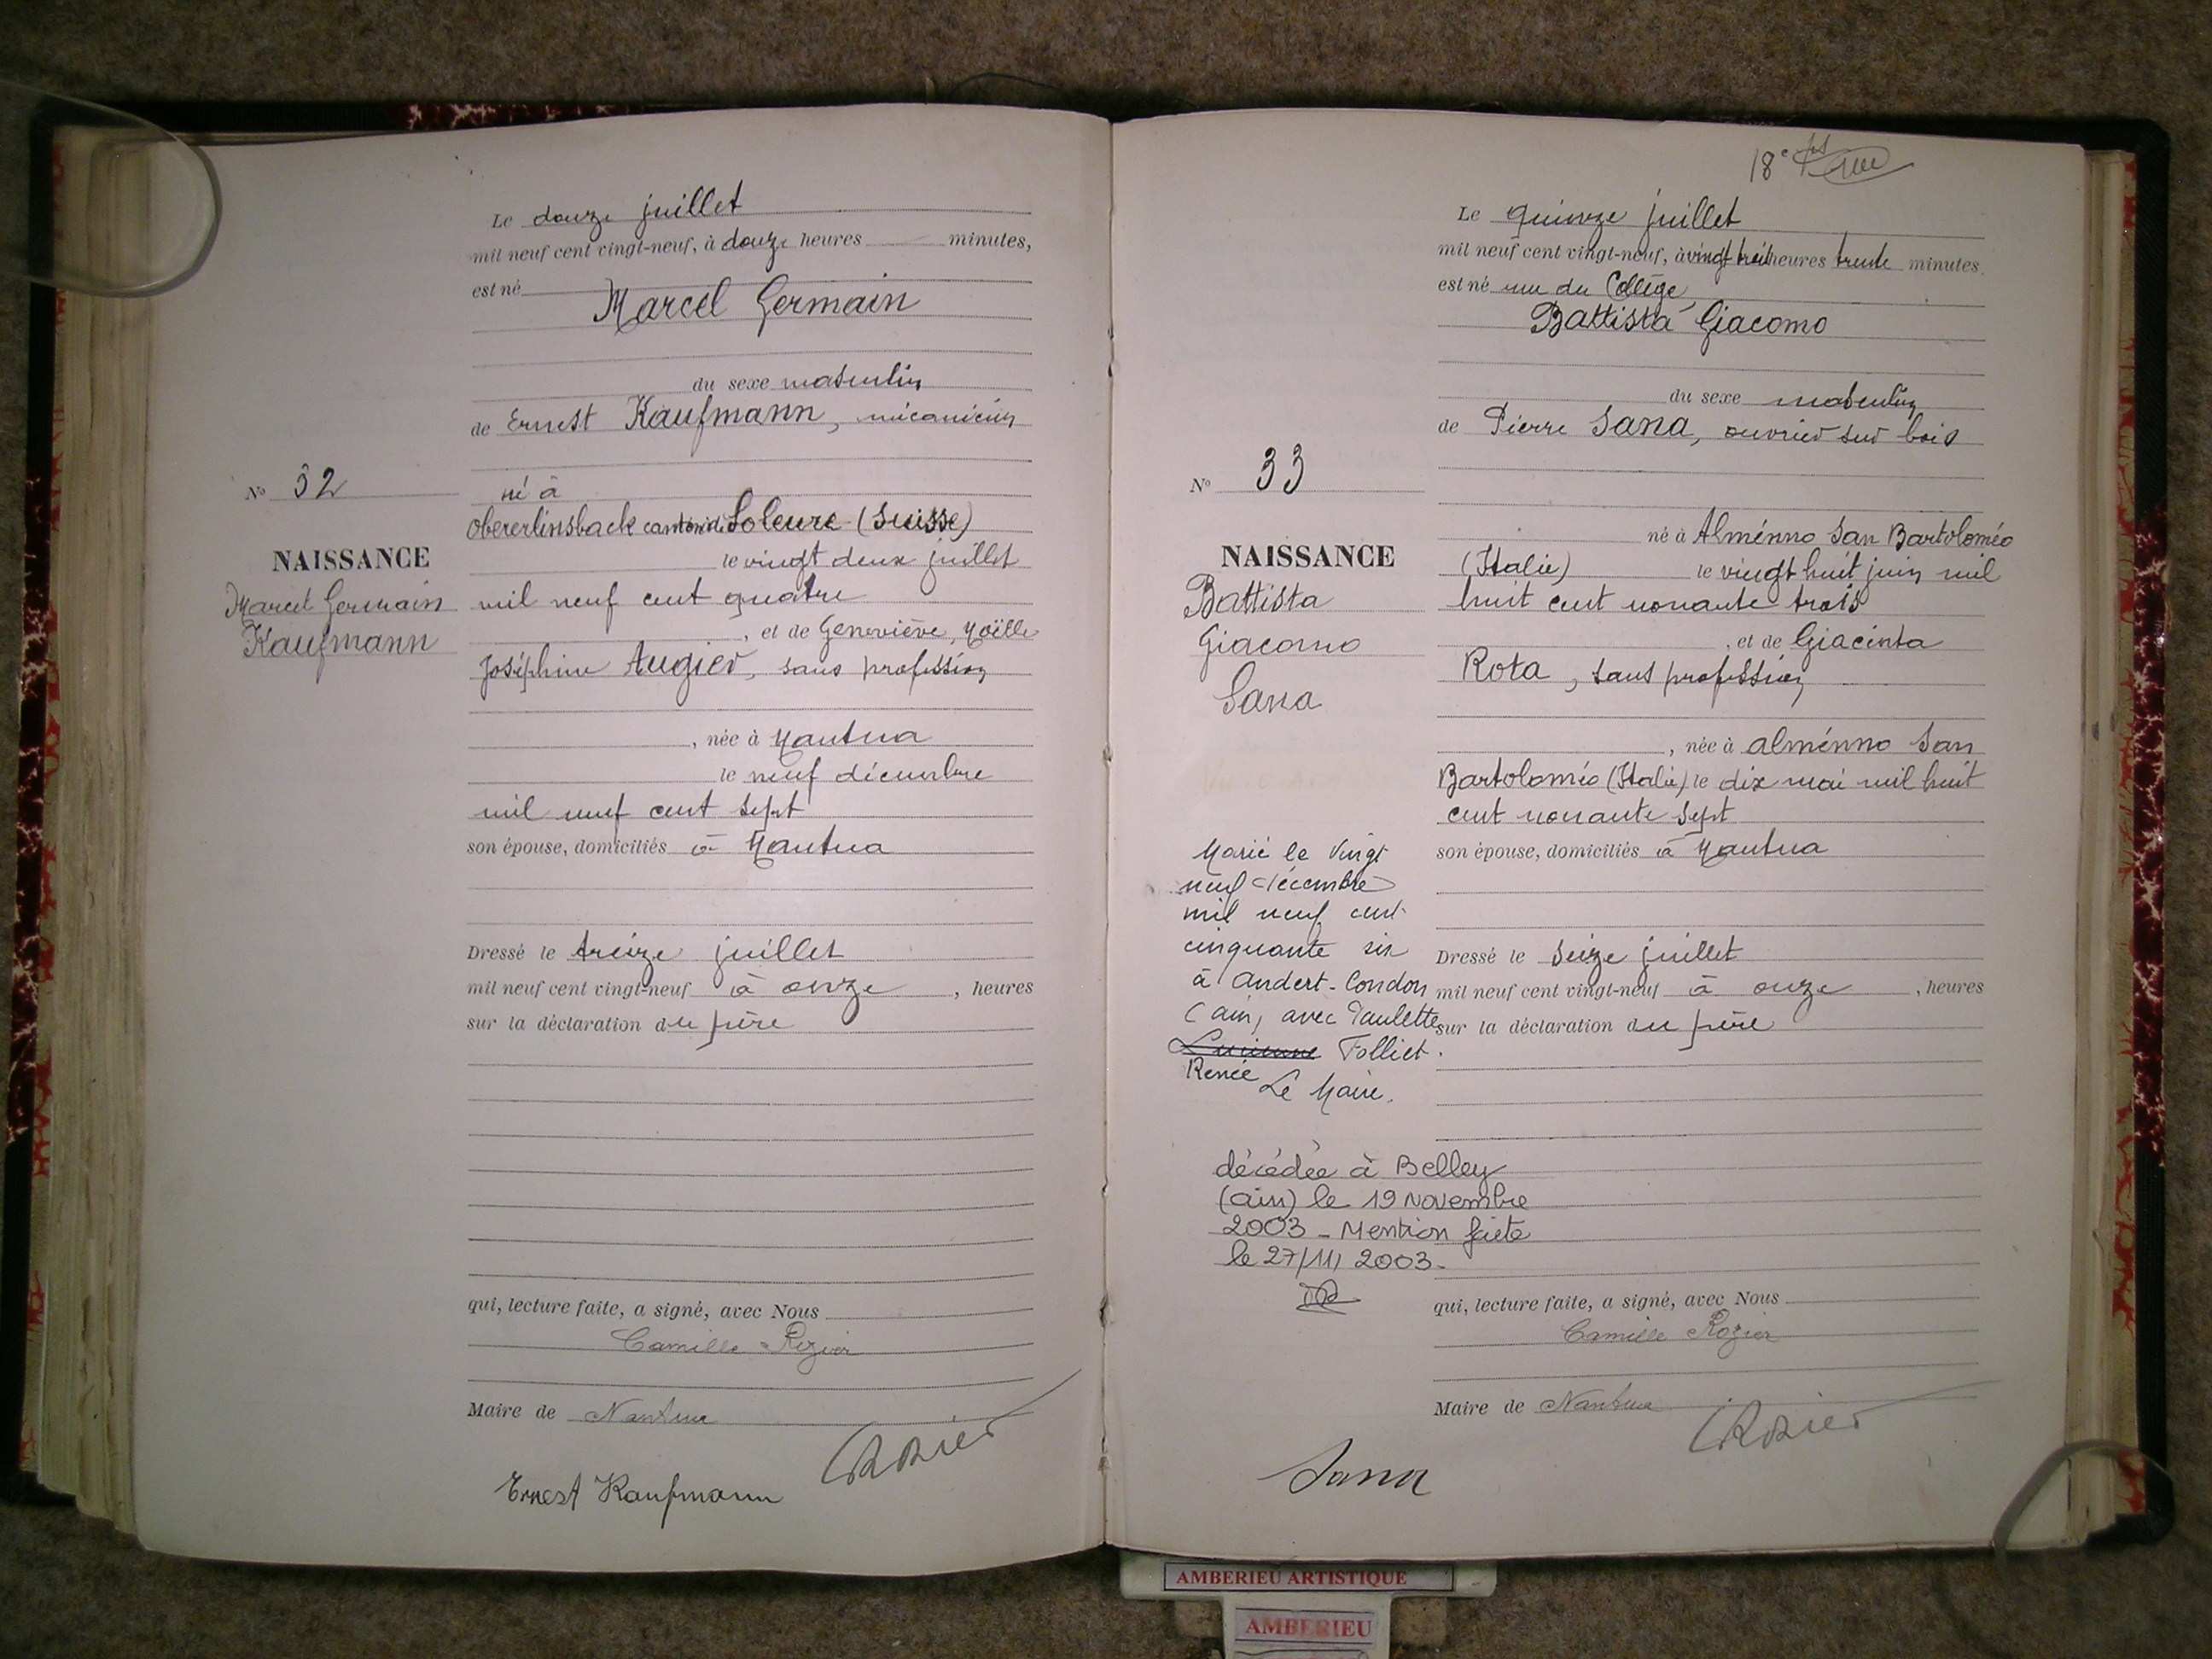 Le douze juillet
mil neuf cent vingt-neuf, à douze heures minutes,
est né
Marcel Germain
du sexe masculin
de Ernest Kaufmann, mécanicien
né à
Obererlinsback canton de Soleure (Suisse)
le vingt deux juillet
mil neuf cent quatre
, et de Geneviève, Noëlle
Joséphine Augier, sans profession
, née à Nantua
le neuf décembre
mil neuf cent sept
son épouse, domiciliés à Nantua
Dressé le treize juillet
mil neuf cent vingt-neuf à onze , heures
sur la déclaration du père
qui, lecture faite, a signé, avec Nous
Camille Rozier
Maire de Nantua
CRozier
Ernest Kaufmann
N° 32
NAISSANCE
Marcel Germain
Kaufmann
18e
Le quinze juillet
mil neuf cent vingt-neuf, à vingt trois heures trente minutes
est né rue du Collège
Battista Giacomo
du sexe masculin
de Pierre Sana, ouvrier sur bois
né à Alménno San Bartoloméo
(Italie) le vingt huit juin mil
huit cent nonante trois
, et de Giacinta
Rota, sans profession
, née à Alménno San
Bartoloméo (Italie) le dix mai mil huit
cent nonante sept
son épouse, domiciliés à Nantua
Dressé le seize juillet
mil neuf cent vingt-neuf à onze , heures
sur la déclaration du père
qui, lecture faite, a signé, avec Nous
Camille Rozier
Maire de Nantua
CRozier
Sana
N° 33
NAISSANCE
Battista
Giacomo
Sana
Marié le vingt
neuf décembre
mil neuf cent
cinquante six
à Andert-Condon
(Ain) avec Paulette
Lucienne Folliet.
Renée
Le Maire.
décédée à Belley
(Ain) le 19 Novembre
2003 - Mention faite
le 27/11/2003-
AMBERIEU ARTISTIQUE
AMBERIEU